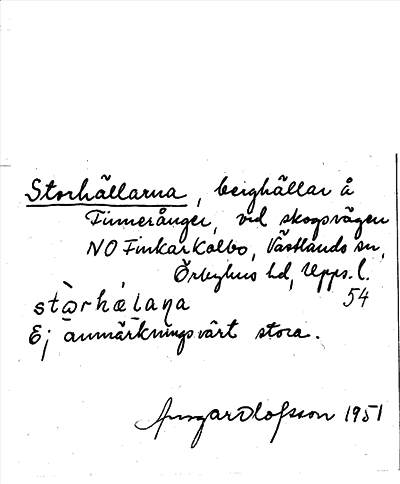 Storhällarna, berghällar å
Finneränger, vid skogsvägen
NO Finkarkolbo, Västlands sn,
Örbyhus hd, Upps. l.
54
stɷ̀rhǽlaɳa
Ej anmärkningsvärt stora.
Ansgar Olofsson 1951